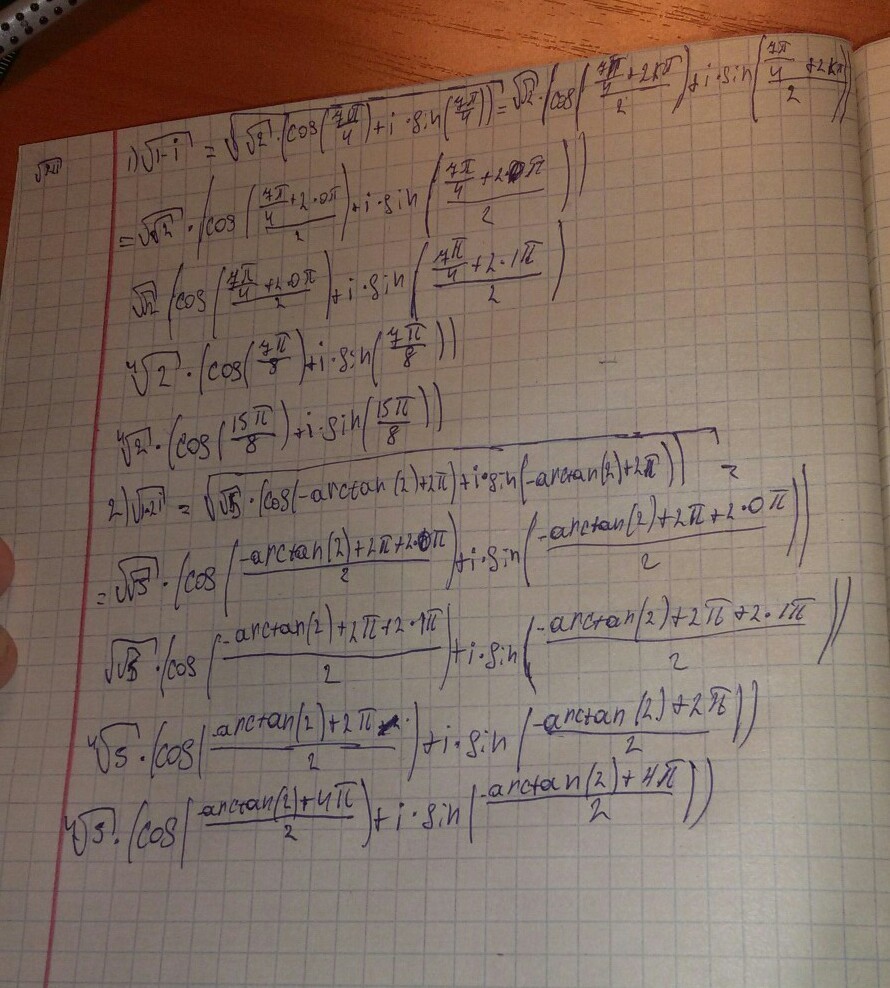 1) √(1-i) = √(√2·(cos(7π/4)+i·sin(7π/4))) = √√2·(cos((7π/4+2kπ)/2)+i·sin((7π/4+2kπ)/2))
= √√2·(cos((7π/4+2·0π)/2)+i·sin((7π/4+2·0π)/2))
√√2(cos((7π/4+2·0π)/2)+i·sin((7π/4+2·1π)/2)
⁴√2·(cos(7π/8)+i·sin(7π/8))
⁴√2·(cos(15π/8)+i·sin(15π/8))
2) √(1-2i) = √(√5·(cos(-arctan(2)+2π)+i·sin(-arctan(2)+2π))) =
= √√5·(cos((-arctan(2)+2π+2·0π)/2)+i·sin((-arctan(2)+2π+2·0π)/2))
√√5·(cos((-arctan(2)+2π+2·1π)/2)+i·sin((-arctan(2)+2π+2·1π)/2))
⁴√5·(cos((-arctan(2)+2π)/2)+i·sin((-arctan(2)+2π)/2))
⁴√5·(cos((-arctan(2)+4π)/2)+i·sin((-arctan(2)+4π)/2))